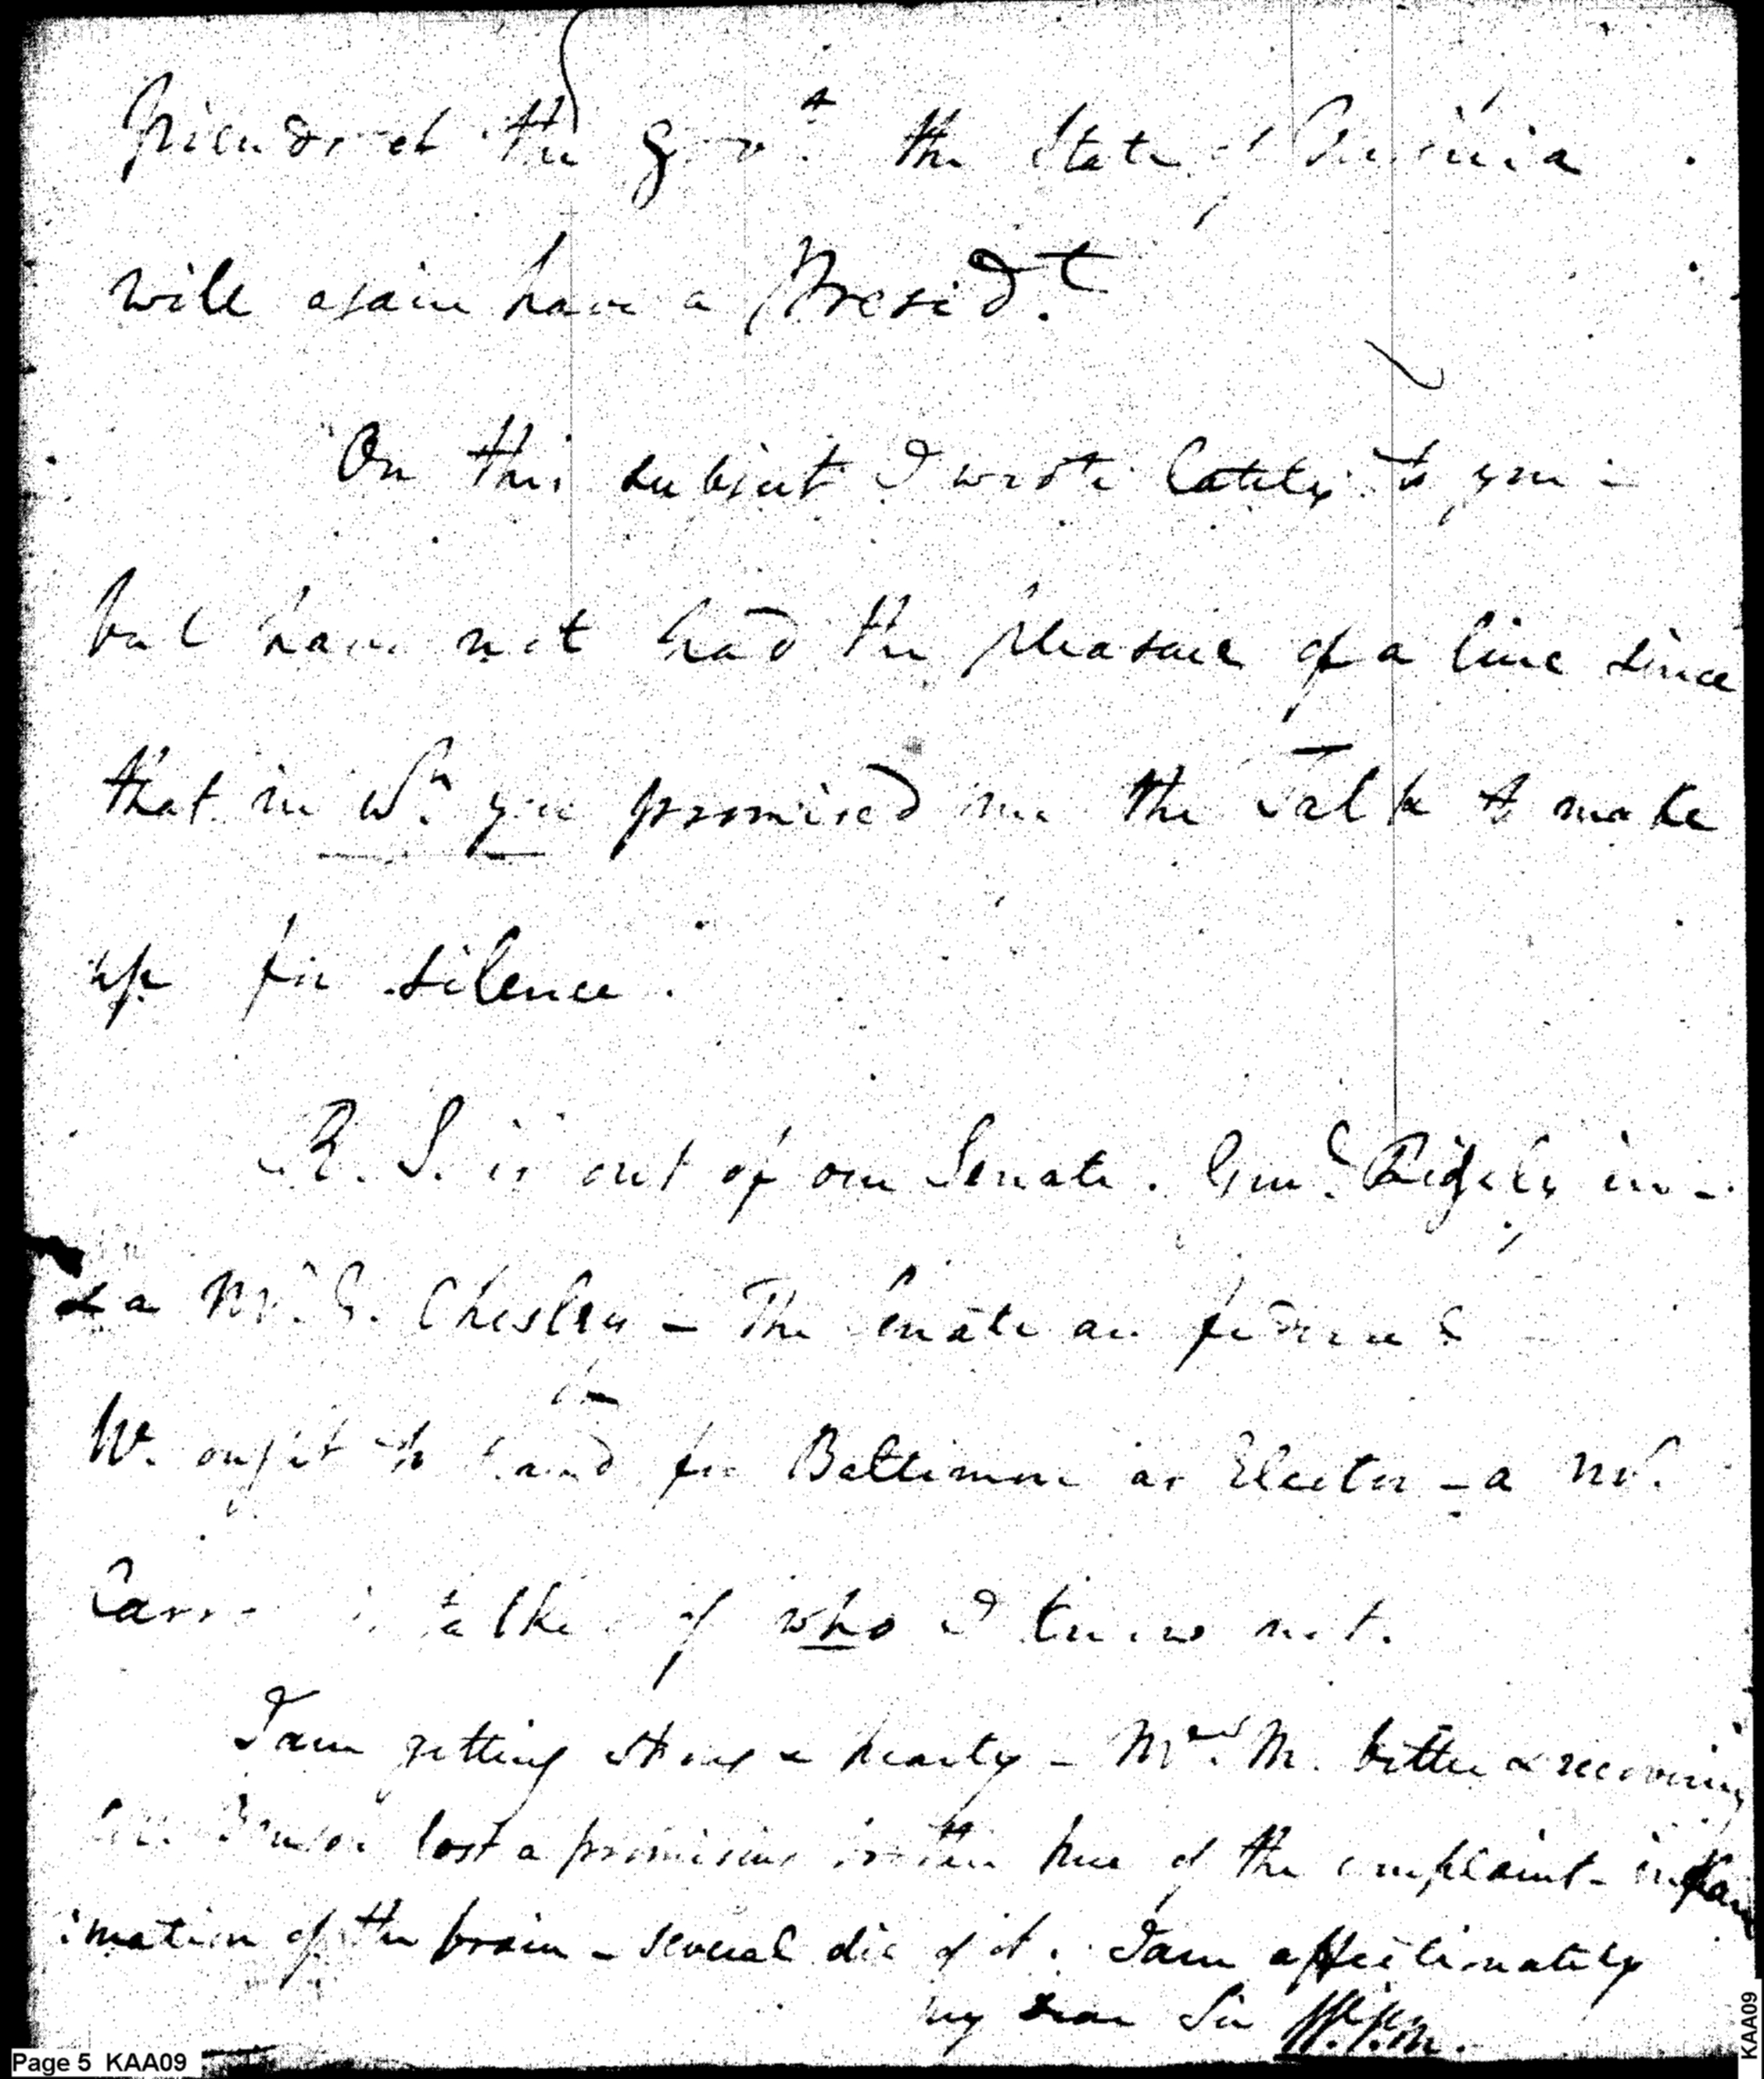 friends of the gov.t the State of Virginia
will again have a Presid.t
On this subject I wrote lately to you -
but have not had the pleasure of a line since
that in w.h you promised me the Talk to make
up for silence.
R. S. is out of our Senate. Gen.l Ridgely in -
& a Mr. Chesley - The Senate are federal
W. ought to stand for Baltimore as Elector - a Mr.
talked of who I know not.
I am getting strong & hearty - Mrs. M. better & recovering
lost a promising here of the complaint - inflam
mation of the brain - several die of it. I am affectionately
my dear Sir
Page 5 KAA09
KAA09